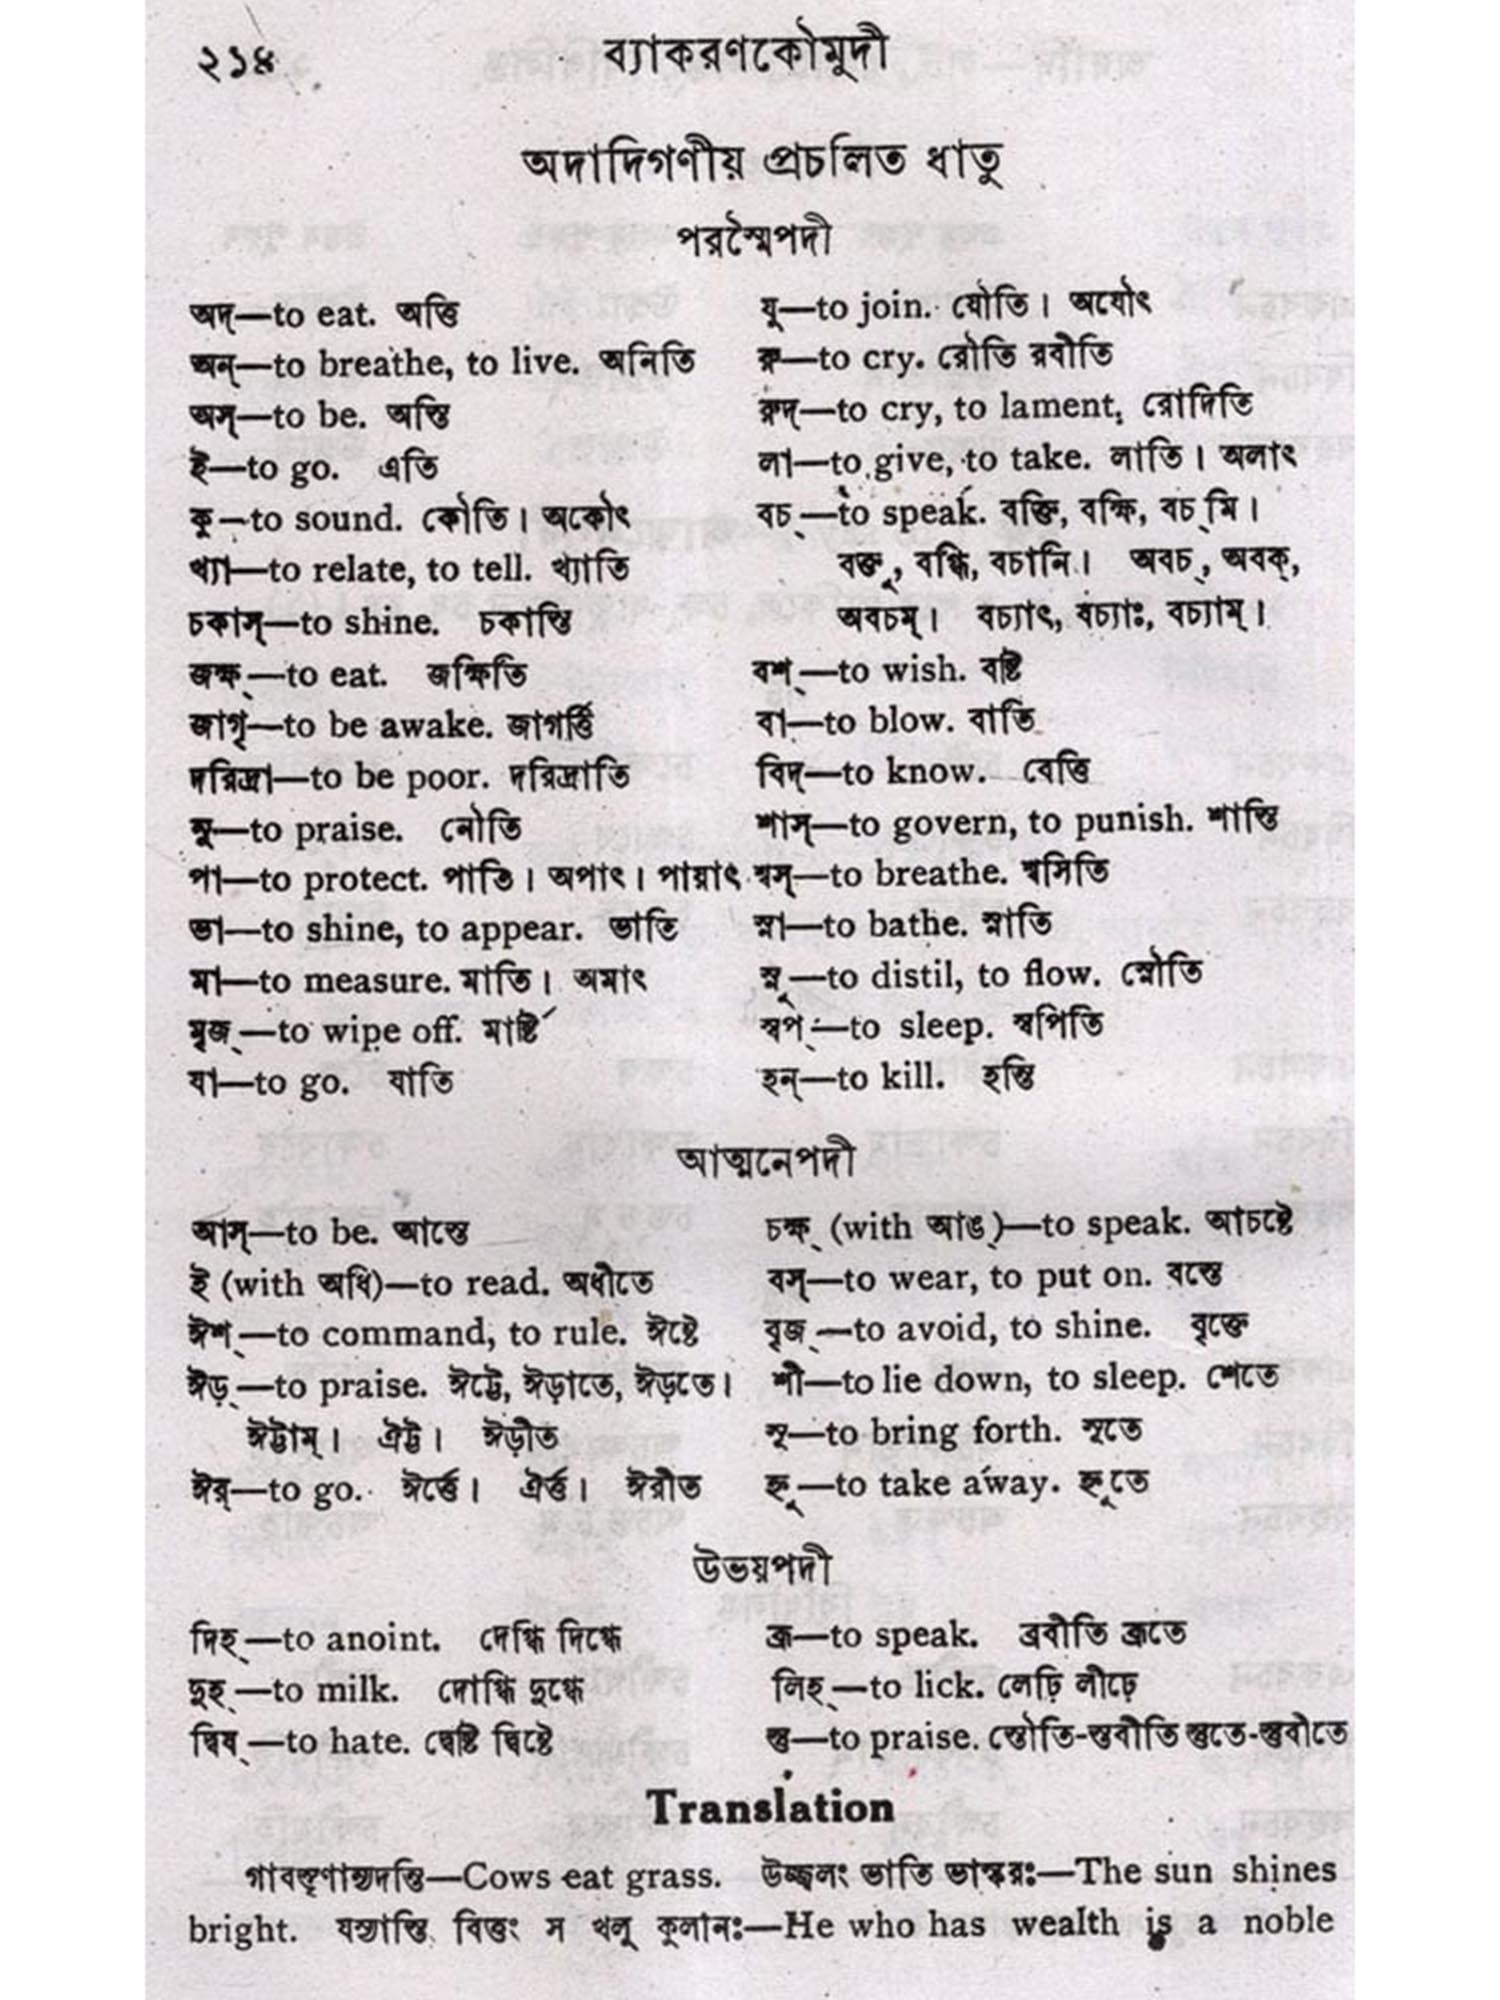 ২১৪ ব্যাকরণকৌমুদী
অদাদিগণীয় প্রচলিত ধাতু
পরস্মৈপদী
অদ্—to eat. অত্তি
অন্—to breathe, to live. অনিতি
অস্—to be. অস্তি
ই—to go. এতি
কু—to sound. কৌতি। অকৌৎ
খ্যা—to relate, to tell. খ্যাতি
চকাস্—to shine. চকাস্তি
জক্ষ্—to eat. জক্ষিতি
জাগৃ—to be awake. জাগর্ত্তি
দরিদ্রা—to be poor. দরিদ্রাতি
নু—to praise. নৌতি
পা—to protect. পাতি। অপাৎ। পায়াৎ
ভা—to shine, to appear. ভাতি
মা—to measure. মাতি। অমাৎ
মৃজ্—to wipe off. মার্ষ্টি
যা—to go. যাতি
যু—to join. যৌতি। অযৌৎ
রু—to cry. রৌতি রবীতি
রুদ্—to cry, to lament, রোদিতি
লা—to give, to take. লাতি। অলাৎ
বচ্—to speak. বক্তি, বক্ষি, বচ্মি।
বক্তু, বগ্ধি, বচানি। অবচ্, অবক্,
অবচম্। বচ্যাৎ, বচ্যাঃ, বচ্যাম্।
বশ্—to wish. বষ্টি
বা—to blow. বাতি
বিদ্—to know. বেত্তি
শাস্—to govern, to punish. শাস্তি
শ্বস্—to breathe. শ্বসিতি
স্না—to bathe. স্নাতি
স্নু—to distil, to flow. স্নৌতি
স্বপ্—to sleep. স্বপিতি
হন্—to kill. হন্তি
আত্মনেপদী
আস্—to be. আস্তে
ই (with অধি)—to read. অধীতে
ঈশ্—to command, to rule. ঈষ্টে
ঈড়্—to praise. ঈট্টে, ঈড়াতে, ঈড়তে।
ঈট্টাম্। ঐট্ট। ঈড়ীত
ঈর্—to go. ঈর্ত্তে। ঐর্ত্ত। ঈরীত
চক্ষ্ (with আঙ্)—to speak. আচষ্টে
বস্—to wear, to put on. বস্তে
বৃজ্—to avoid, to shine. বৃক্তে
শী—to lie down, to sleep. শেতে
সূ—to bring forth. সূতে
হ্নু—to take away. হ্নুতে
উভয়পদী
দিহ্—to anoint. দেগ্ধি দিগ্ধে
দুহ্—to milk. দোগ্ধি দুগ্ধে
দ্বিষ্—to hate. দ্বেষ্টি দ্বিষ্টে
ব্রূ—to speak. ব্রবীতি ব্রূতে
লিহ্—to lick. লেঢ়ি লীঢ়ে
স্তু—to praise. স্তৌতি-স্তবীতি স্তুতে-স্তুবীতে
Translation
গাবস্তৃণান্যদন্তি—Cows eat grass. উজ্জ্বলং ভাতি ভাস্করঃ—The sun shines
bright. যস্যাস্তি বিত্তং স খলু কুলীনঃ—He who has wealth is a noble